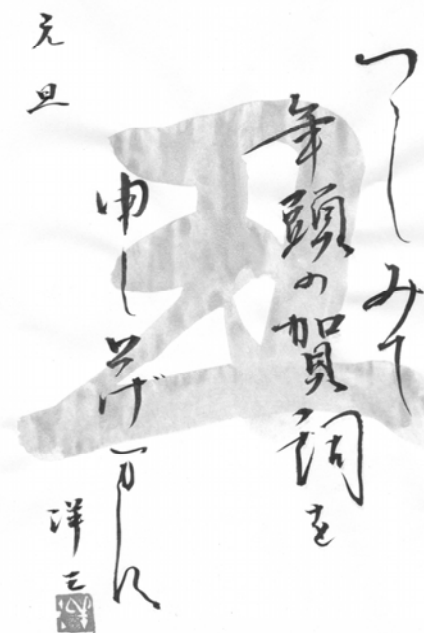 丑
つゝしみて
年頭の賀詞を
申し上げます
元旦
洋